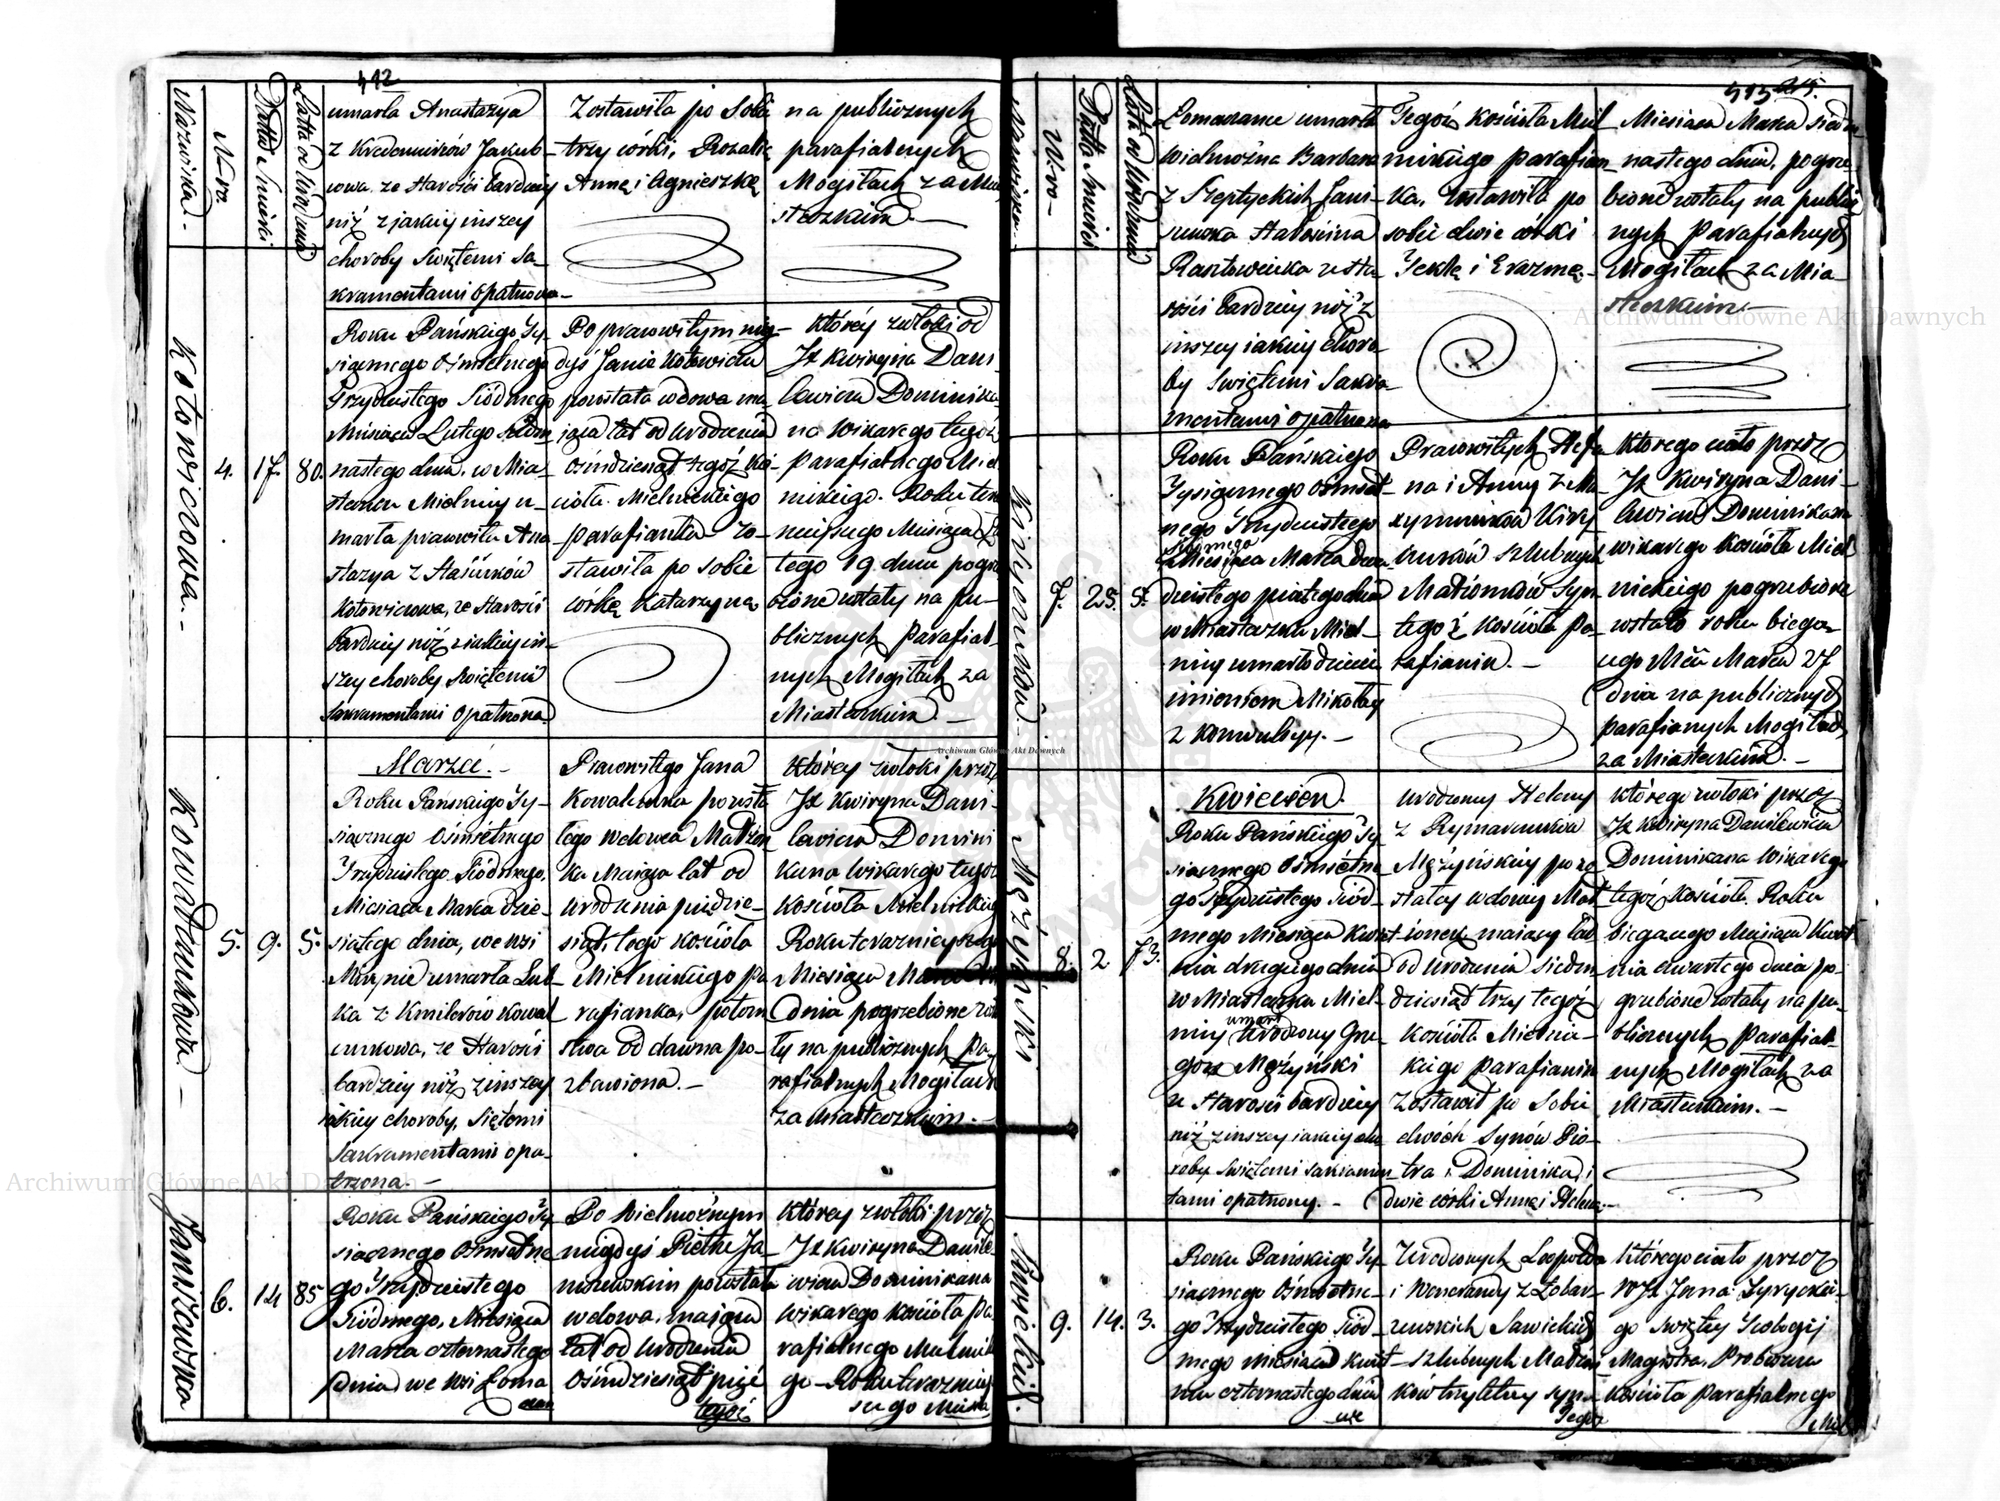 412
Nazwiska
N-ro.
Datta Śmierci
Latta od Urodzenia
umarła Anastazya
Jakub-
niż z jakiey inszey
choroby Swiętemi Sa-
kramentami opatrzona-
Zostawiła po Sobie
trzy córki, Rozalię
Annę i Agnieszkę
na publicznych
parafialnych
Mogiłach za Mia
steczkiem. -
Kotowiczowa. -
4.
17.
80.
Roku Pańskiego Ty-
siącznego Ośmsetnego
Trzydziestego Siódmego
Miesiąca Lutego siedm
nastego dnia, w Mia-
steczku Mielnicy u-
marła prawowita Ana
stazya z
Kotowiczowa, ze Starości
bardziey niż z jakiey in-
szey choroby Swiętemi
Sakramentami opatrzona
Po prawowitym nie-
dyś Janie Kotowiczu
pozostała wdowa ma-
jąca lat od Urodzenia
Ośmdziesiąt tegóż Koś-
cioła Mielnickiego
parafianka zo-
stawiła po sobie
córkę Katarzynę
którey zwłoki od
JX Kwiryna Dani-
lewicza Dominika
na Wikarego tegoż
parafialnego Miel
nickiego. Roku tera
nieyszego Miesiąca Lu
tego 19 dnia pogrze
bione zostały na pu-
blicznych parafial-
nych Mogiłach za
Miasteczkiem. -
Kowalczukowa. -
5.
9.
5.
Marzec. -
Roku Pańskiego Ty-
siącznego Ośmsetnego
Trzydziestego Siódmego,
Miesiąca Marca dzie-
siątego dnia, we wsi
umarła Lub-
ka z Kmiterów Kowal
czukowa, ze Starości
bardziey niż z inszey
jakiey choroby, Siętemi
Sakramentami opa-
trzona. -
Prawowitego Jana
Kowalczuka pozosta
łego wdowca Małżon
ka Mająca lat od
Urodzenia pięćdzie-
siąt, tego kościoła
Mielnickiego pa
rafianka, potom
stwa od dawna po-
zbawiona. -
którey zwłoki przez
JX Kwiryna Dani-
lewicza Domini
kana Wikarego tegoż
Kościoła Mielnickieg
Roku teraznieyszego
Miesiąca Marca
dnia pogrzebione zos
ły na publicznych Pa-
rafialnych Mogiłach
za Miasteczkiem. -
Janiszewska
6.
14
85
Roku Pańskiego Ty
siącznego Ośmsetne
go Trzydziestego
Siódmego, Miesiąca
Marca czternastego
Dnia we wsi Łoma
Po Wielmożnym
niegdyś Piotrze Ja-
niszewskim pozostała
wdowa, mająca
lat od Urodzenia
Ośmdziesiąt pięć
tegoż
którey zwłoki przez
JX Kwiryna Danile-
wicza Dominikana
Wikarego Kościoła Pa
rafialnego Mielnick
go - Roku terazniey
szego Miesią
413
215.
Nazwiska
N-ro -
Datta Śmierci
Latta od Urodzenia
umarła
Wielmożna Barbara
z Szeptyckich Jani-
szewska
ze sta
rości bardziey niż z
inszey jakiey choro-
by Swiętemi Sakra-
mentami opatrzona
Tegoż Kościoła Miel
nickiego parafian-
ka, zostawiła po
sobie dwie córki
Teklę i Erazmę-
Miesiąca Marca siedm
nastego dnia, pogrze-
bione zostały na public
nych Parafialnych
Mogiłach za Mia
steczkiem. -
7.
25.
5.
Roku Pańskiego
Tysiącznego Ośmset-
nego Trzydziestego
Siódmego
Miesiąca Marca dwu-
dziestego piątego dnia
w Miasteczku Miel-
nicy umarło dziecie
imieniem Mikołay
z konwulsyy. -
Prawowitych Stefa
na i Anny z Ma
xymiuków
Szlubnych
Małżonków Syn
tegoż Kościoła Pa-
rafianin. -
Którego ciało przez
JX Kwiryna Dani-
lewicza Dominikana
wikarego Kościoła Miel
nickiego pogrzebione
zostało roku bieżą-
cego M-ca Marca 27
dnia na publicznych
parafianych Mogiłach
za Miasteczkiem. -
Mężyński
8.
2
73.
Kwiecień.
Roku Pańskiego Ty
siącznego Ośmsetne
go Trzydziestego Siód
mego Miesiąca Kwiet
nia drugiego dnia
w Miasteczku Miel-
nicy umarł Urodzony Grze
gorz Mężyński
ze Starości bardziey
niż z inszey jakiey cho
roby Swiętemi Sakramen
tami opatrzony. -
Urodzoney Heleny
z
Mężyńskiey pozo
stałey wdowy Mał
żonek mający lat
od Urodzenia siedm
dziesiąt trzy tegoż
Kościoła Mielnic-
kiego Parafianin
Zostawił po Sobie
dwóch synów Pio-
tra i Dominika i
dwie córki Annę i Helenę. -
którego zwłoki przez
JX Kwiryna Danilewicza
Dominikana Wikarego
tegoż Kościoła. Roku
bieżącego Miesiąca Kwiet
nia czwartego dnia po-
grzebione zostały na pu-
blicznych Parafial-
nych Mogiłach za
Miasteczkiem. -
Sawicki.
9.
14.
3.
Roku Pańskiego Ty-
siącznego Ośmsetne-
go Trzydziestego Siód-
mego miesiąca Kwiet-
nia czternastego dnia
we
Urodzonych Leopolda
i Wenerandy z
Sawickich
Szlubnych Małżon
ków trzyletny syn
Tegoż
którego ciało przez
go Swiętey Teologij
Magistra, Proboszcza
Kościoła Parafialnego
Miel
Archiwum Główne Akt Dawnych
Archiwum Główne Akt Dawnych
Archiwum Główne Akt Dawnych